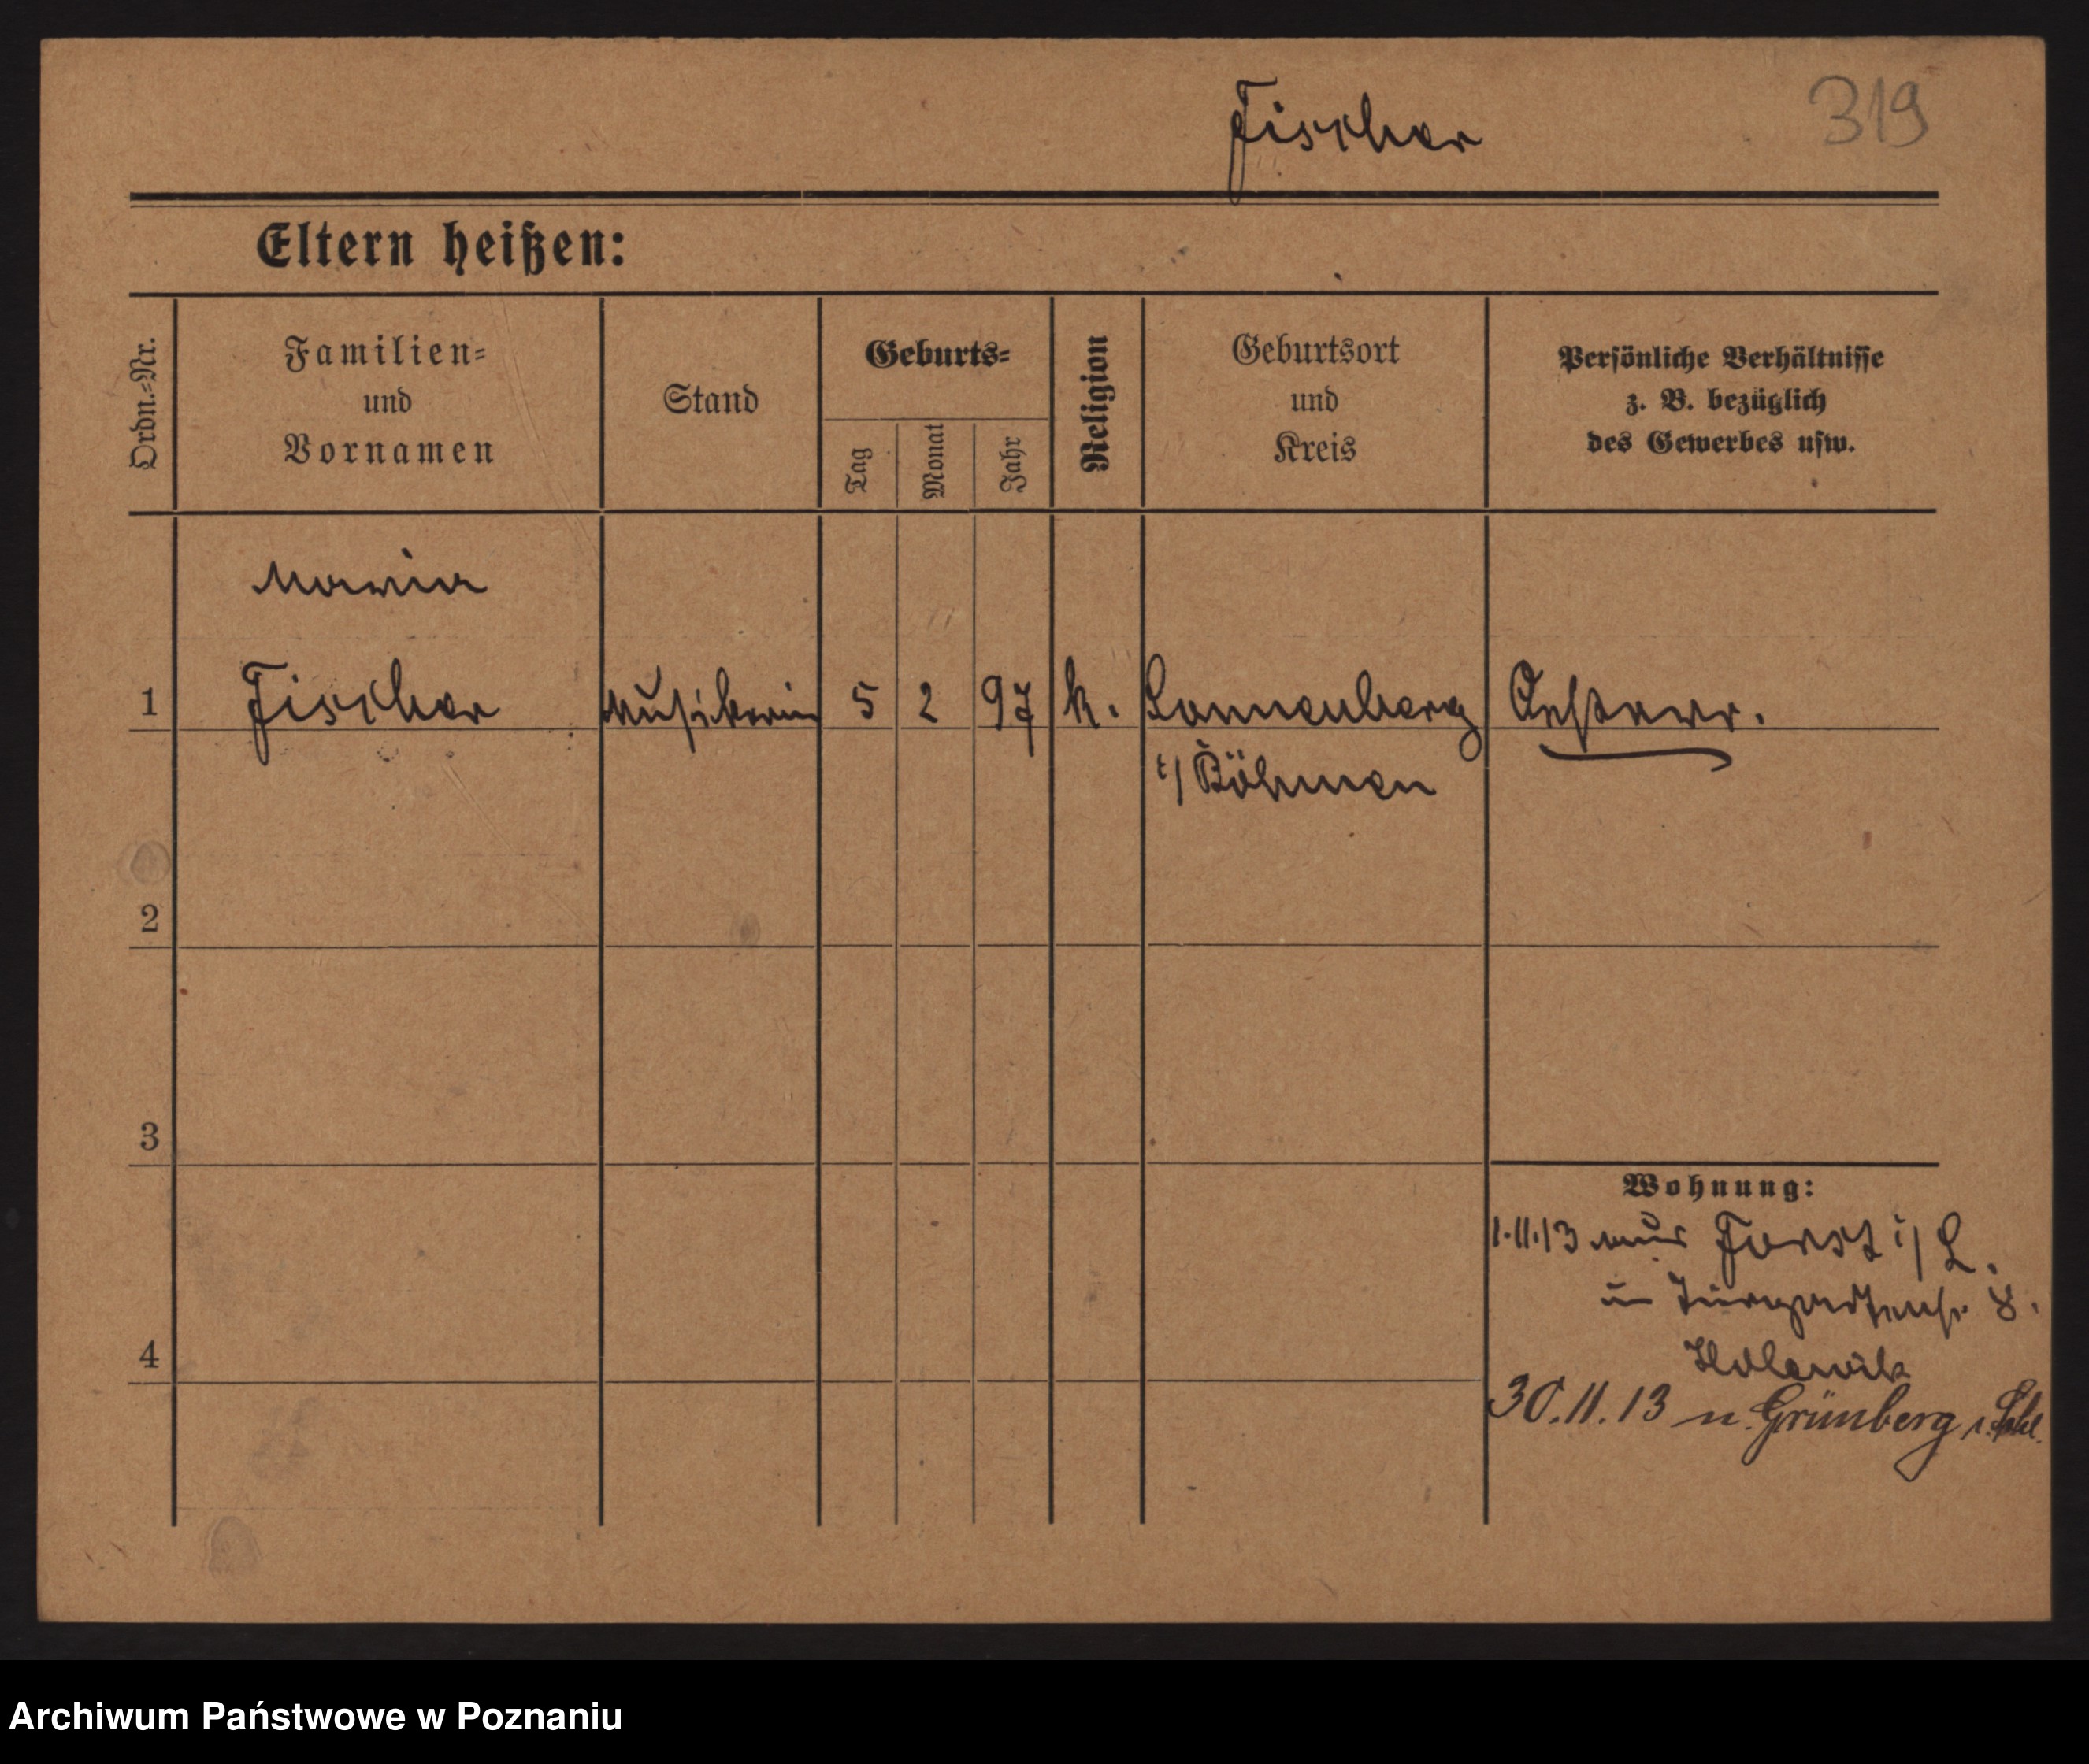 Fischer
319
Eltern heißen:
Ordn.-Nr.
Familien-
und
Vornamen
Stand
Geburts-
Tag
Monat
Jahr
Religion
Geburtsort
und
Kreis
Persönliche Verhältnisse
z. B. bezüglich
des Gewerbes usw.
Maria
1 Fischer Musikerin 5 2 97 k. Sonnenberg Oesterr.
i/ Böhmen
2
3
Wohnung:
1.11.13 aus Forst i/ L.
in 8.
4
30.11.13 n. Grünberg i. Schl.
Archiwum Państwowe w Poznaniu